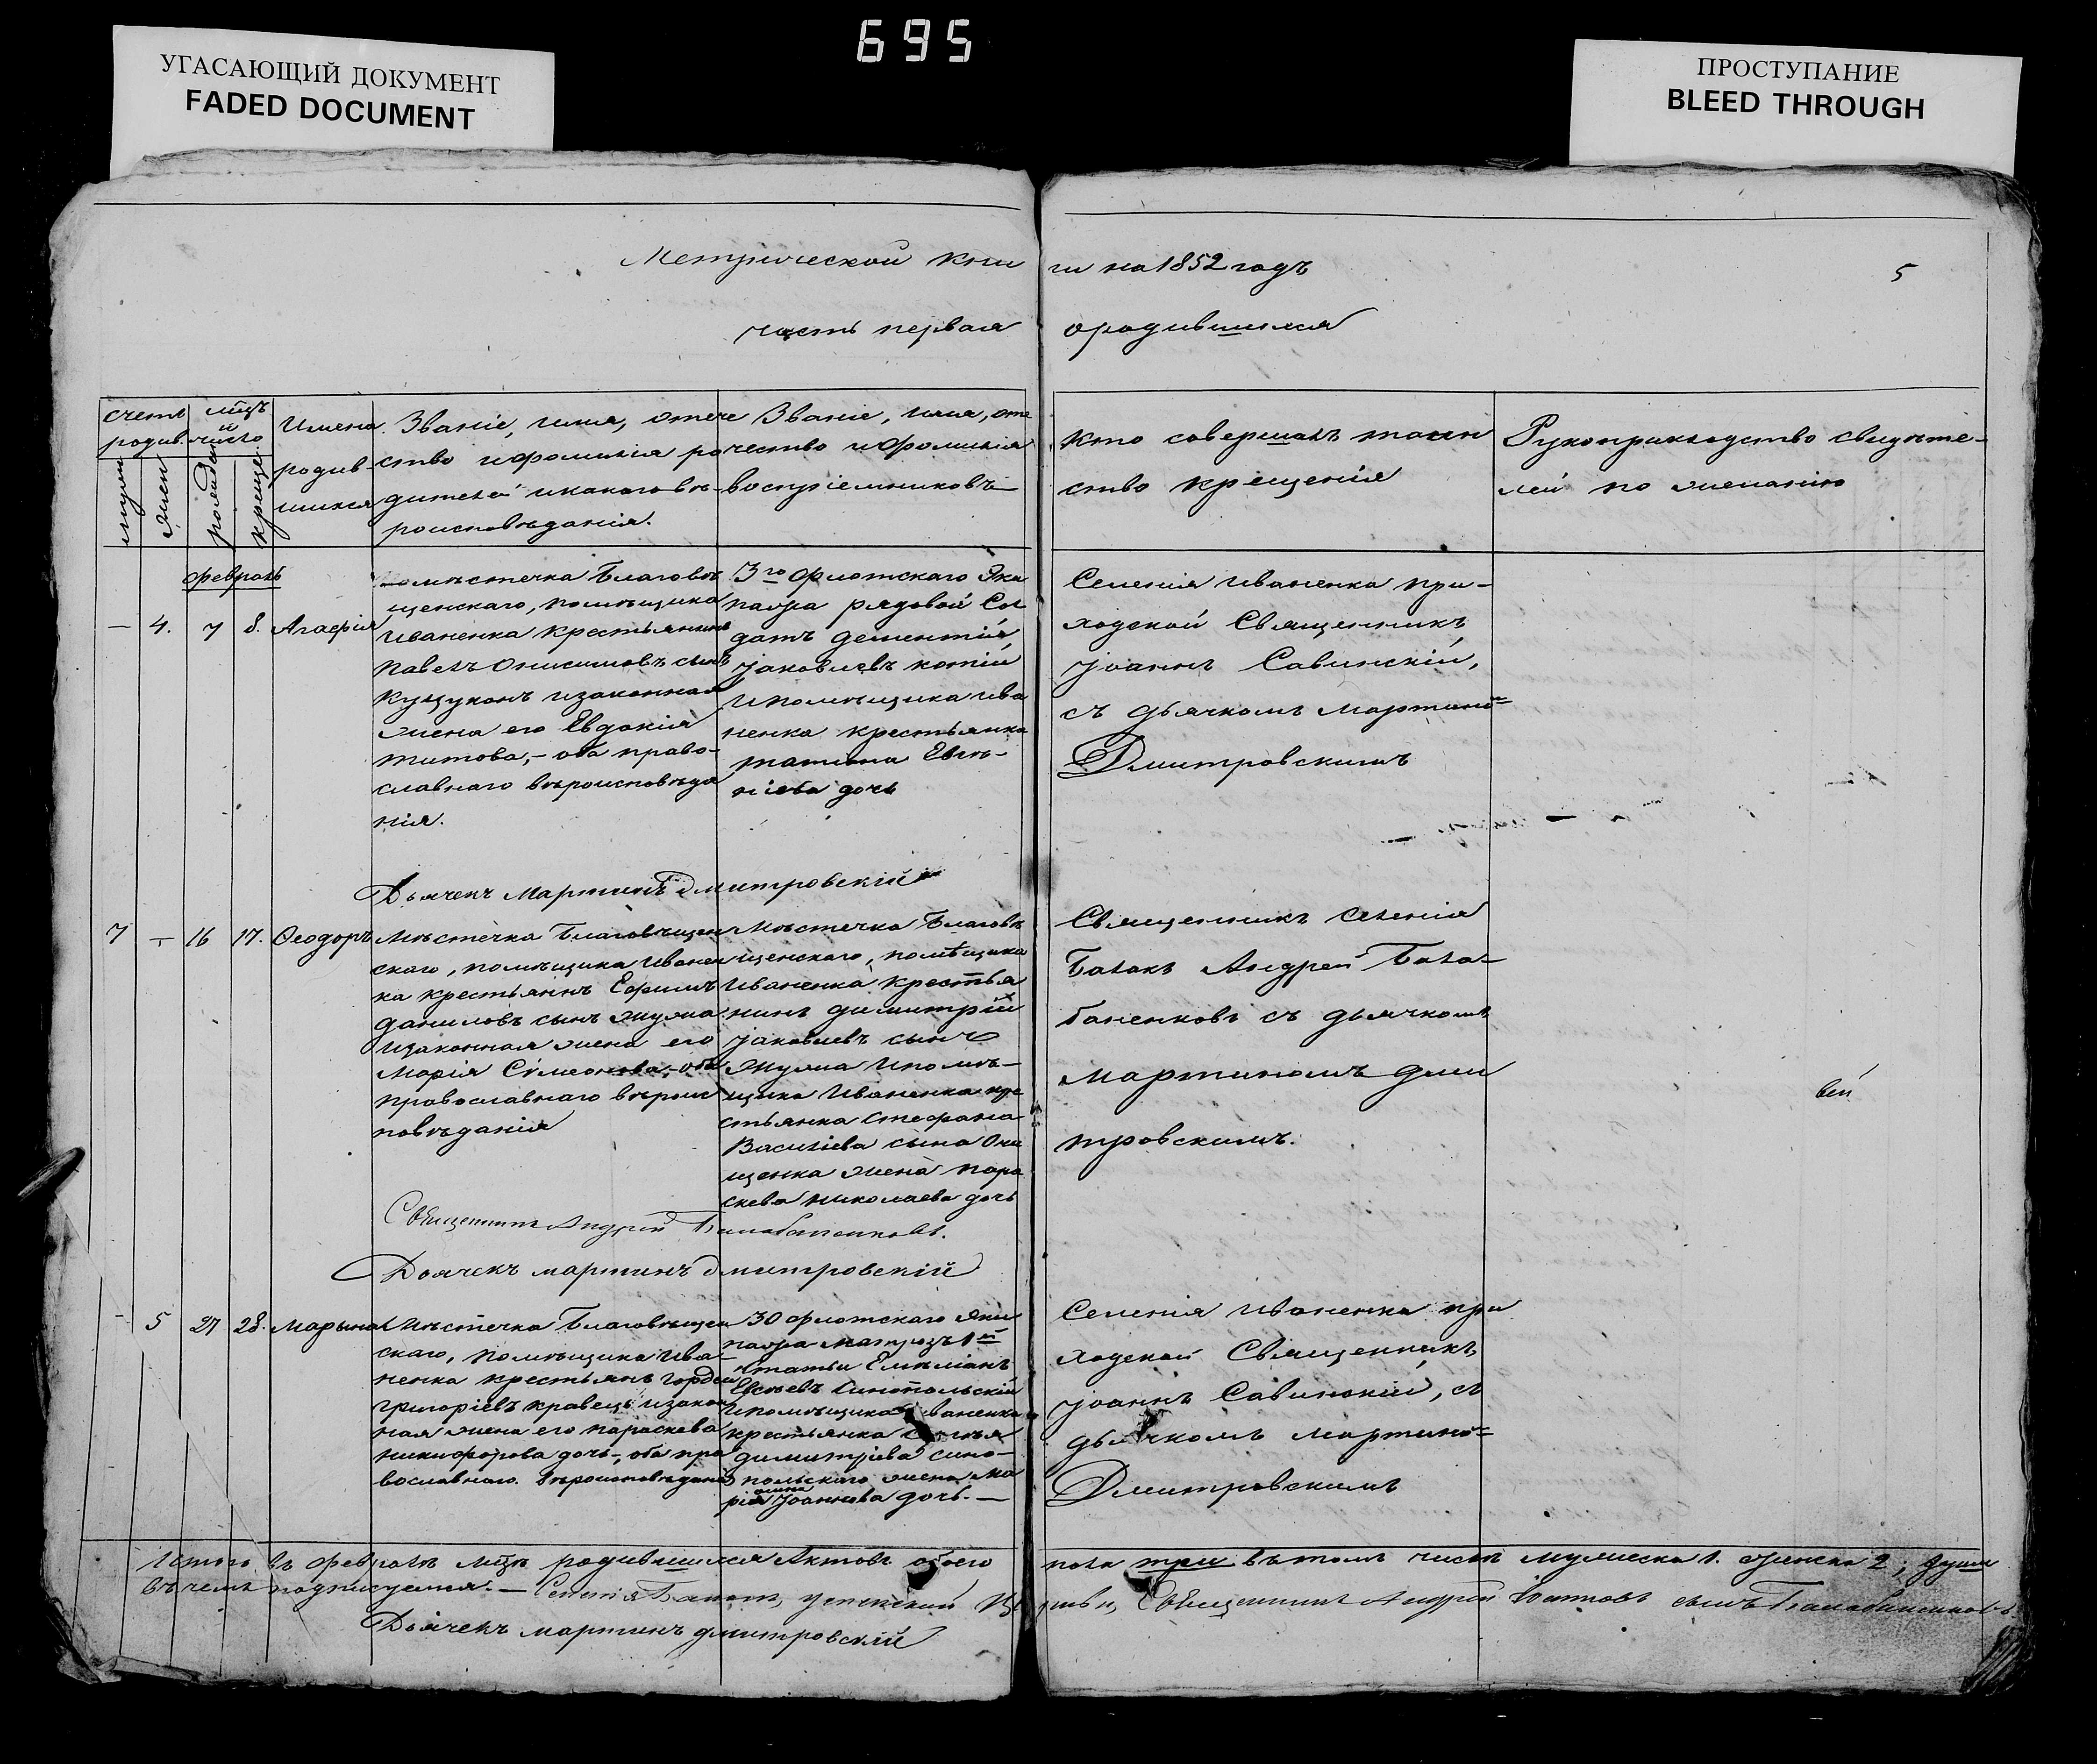 695
УГАСАЮЩИЙ ДОКУМЕНТ
FADED DOCUMENT
ПРОСТУПАНИЕ
BLEED THROUGH
Метрической кни
ги на 1852 годъ
5
часть первая
о родившихся
счетъ родив.
мцъ и число
мужи
женс
рожден
креще.
Имена
родив-
шихся
Званіе, имя, отече
ство и фамилія ро
дителей и какого вѣ-
роисповѣданія.
Званіе, имя, оте
чество и фамилія
воспріемниковъ
Кто совершалъ таин
ство крещенія
Рукоприкладство свидѣте-
лей по желанію
февраль
— 4. 7 8. Агафія
мѣстечка Благовѣ
щенскаго, помѣщика
Иваненка крестьянинъ
Павелъ Онисимовъ сынъ
и законная
жена его Евдокія
Титова, – оба право-
славнаго вѣроисповѣда
нія.
3го флотскаго Эки
пажа рядовой Сол
датъ Дементій
Іаковлевъ
и помѣщика Ива
ненка крестьянка
дочь
Селенія Иваненка при-
ходской Священникъ
Іоаннъ Савинскій,
съ дьячкомъ Мартино=
Дмитровскимъ
Дьячекъ Мартинъ Дмитровскій
7 — 16 17. Ѳеодоръ
Мѣстечка Благовѣщен
скаго, помѣщика Иванен
ка крестьянинъ Ефимъ
Даниловъ сынъ Жужа
и законная жена его
Марія Сѵмеонова, – оба
православнаго вѣроис
повѣданія
Мѣстечка Благовѣ
щенскаго, помѣщика
Иваненка крестья
нинъ Димитрій
Іаковлевъ сынъ
Жужа и помѣ-
щика Иваненка кре
стьянка Стефана
Василіева сына Они
щенка жена Пара
скева Николаева дочь
Священникъ селенія
Балакъ Андрей Бала-
баненковъ съ дьячкомъ
Мартиномъ Дми
тровскимъ.
вей
Священникъ Андрей Балабаненковъ.
Дьячекъ Мартинъ Дмитровскій
- 5 27 28. Марына
Мѣстечка Благовѣщен
скаго, помѣщика Ива-
ненка крестьянъ Гордей
Григоріевъ Кравецъ и закон
ная жена его Параскева
Никифорова дочь-, оба пра
вославнаго вѣроисповѣданія
30 флотскаго Эки
пажа матрозъ 1й
статьи Емиліанъ
Евсѣевъ Синопольскій
и помѣщика Иваненка
крестьянка
Димитріева Сино-
польскаго жена Ма
рія Іоаннова дочь. —
Селенія Иваненка при
ходской Священникъ
Іоаннъ Савинскій, съ
дьячкомъ Мартино=
Дмитровскимъ
Итого въ Февралѣ мцѣ родившихся Актовъ обоего
пола три въ томъ числѣ мужеска 1. женска 2; души
въ чемъ подписуемся. — Селенія Балакъ, Успенской Це
ркви, Священникъ Андрей сынъ Балабаненковъ
Дьячекъ Мартинъ Дмитровскій